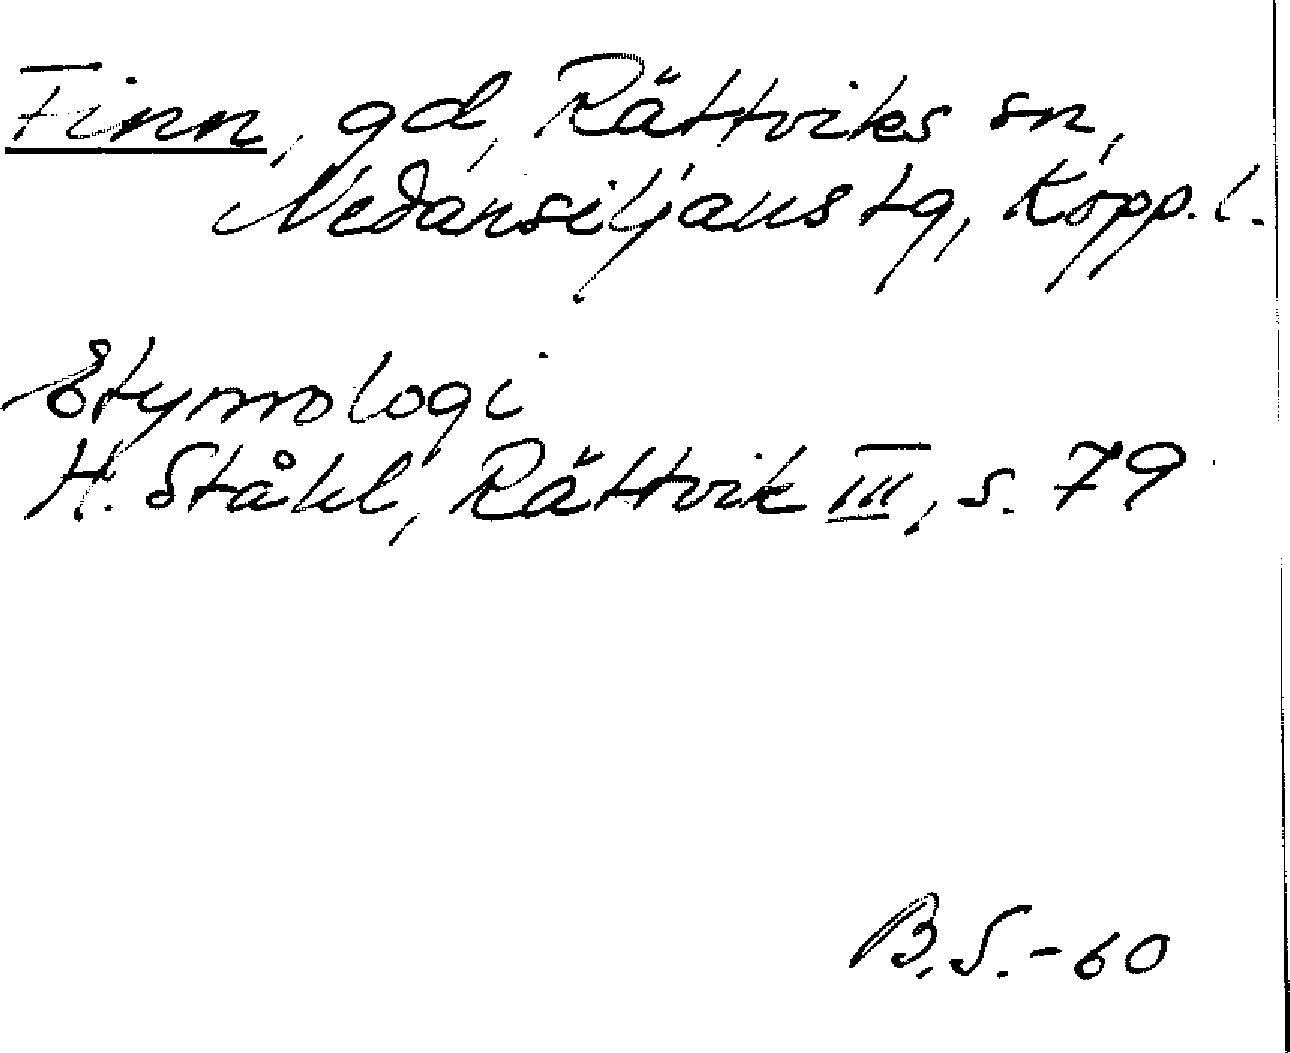 Finn, gd, Rättviks sn,
Nedansiljans tg, Kopp. l.
Etymologi
H. Ståhl, Rättvik III, s. 79
B.S.-60